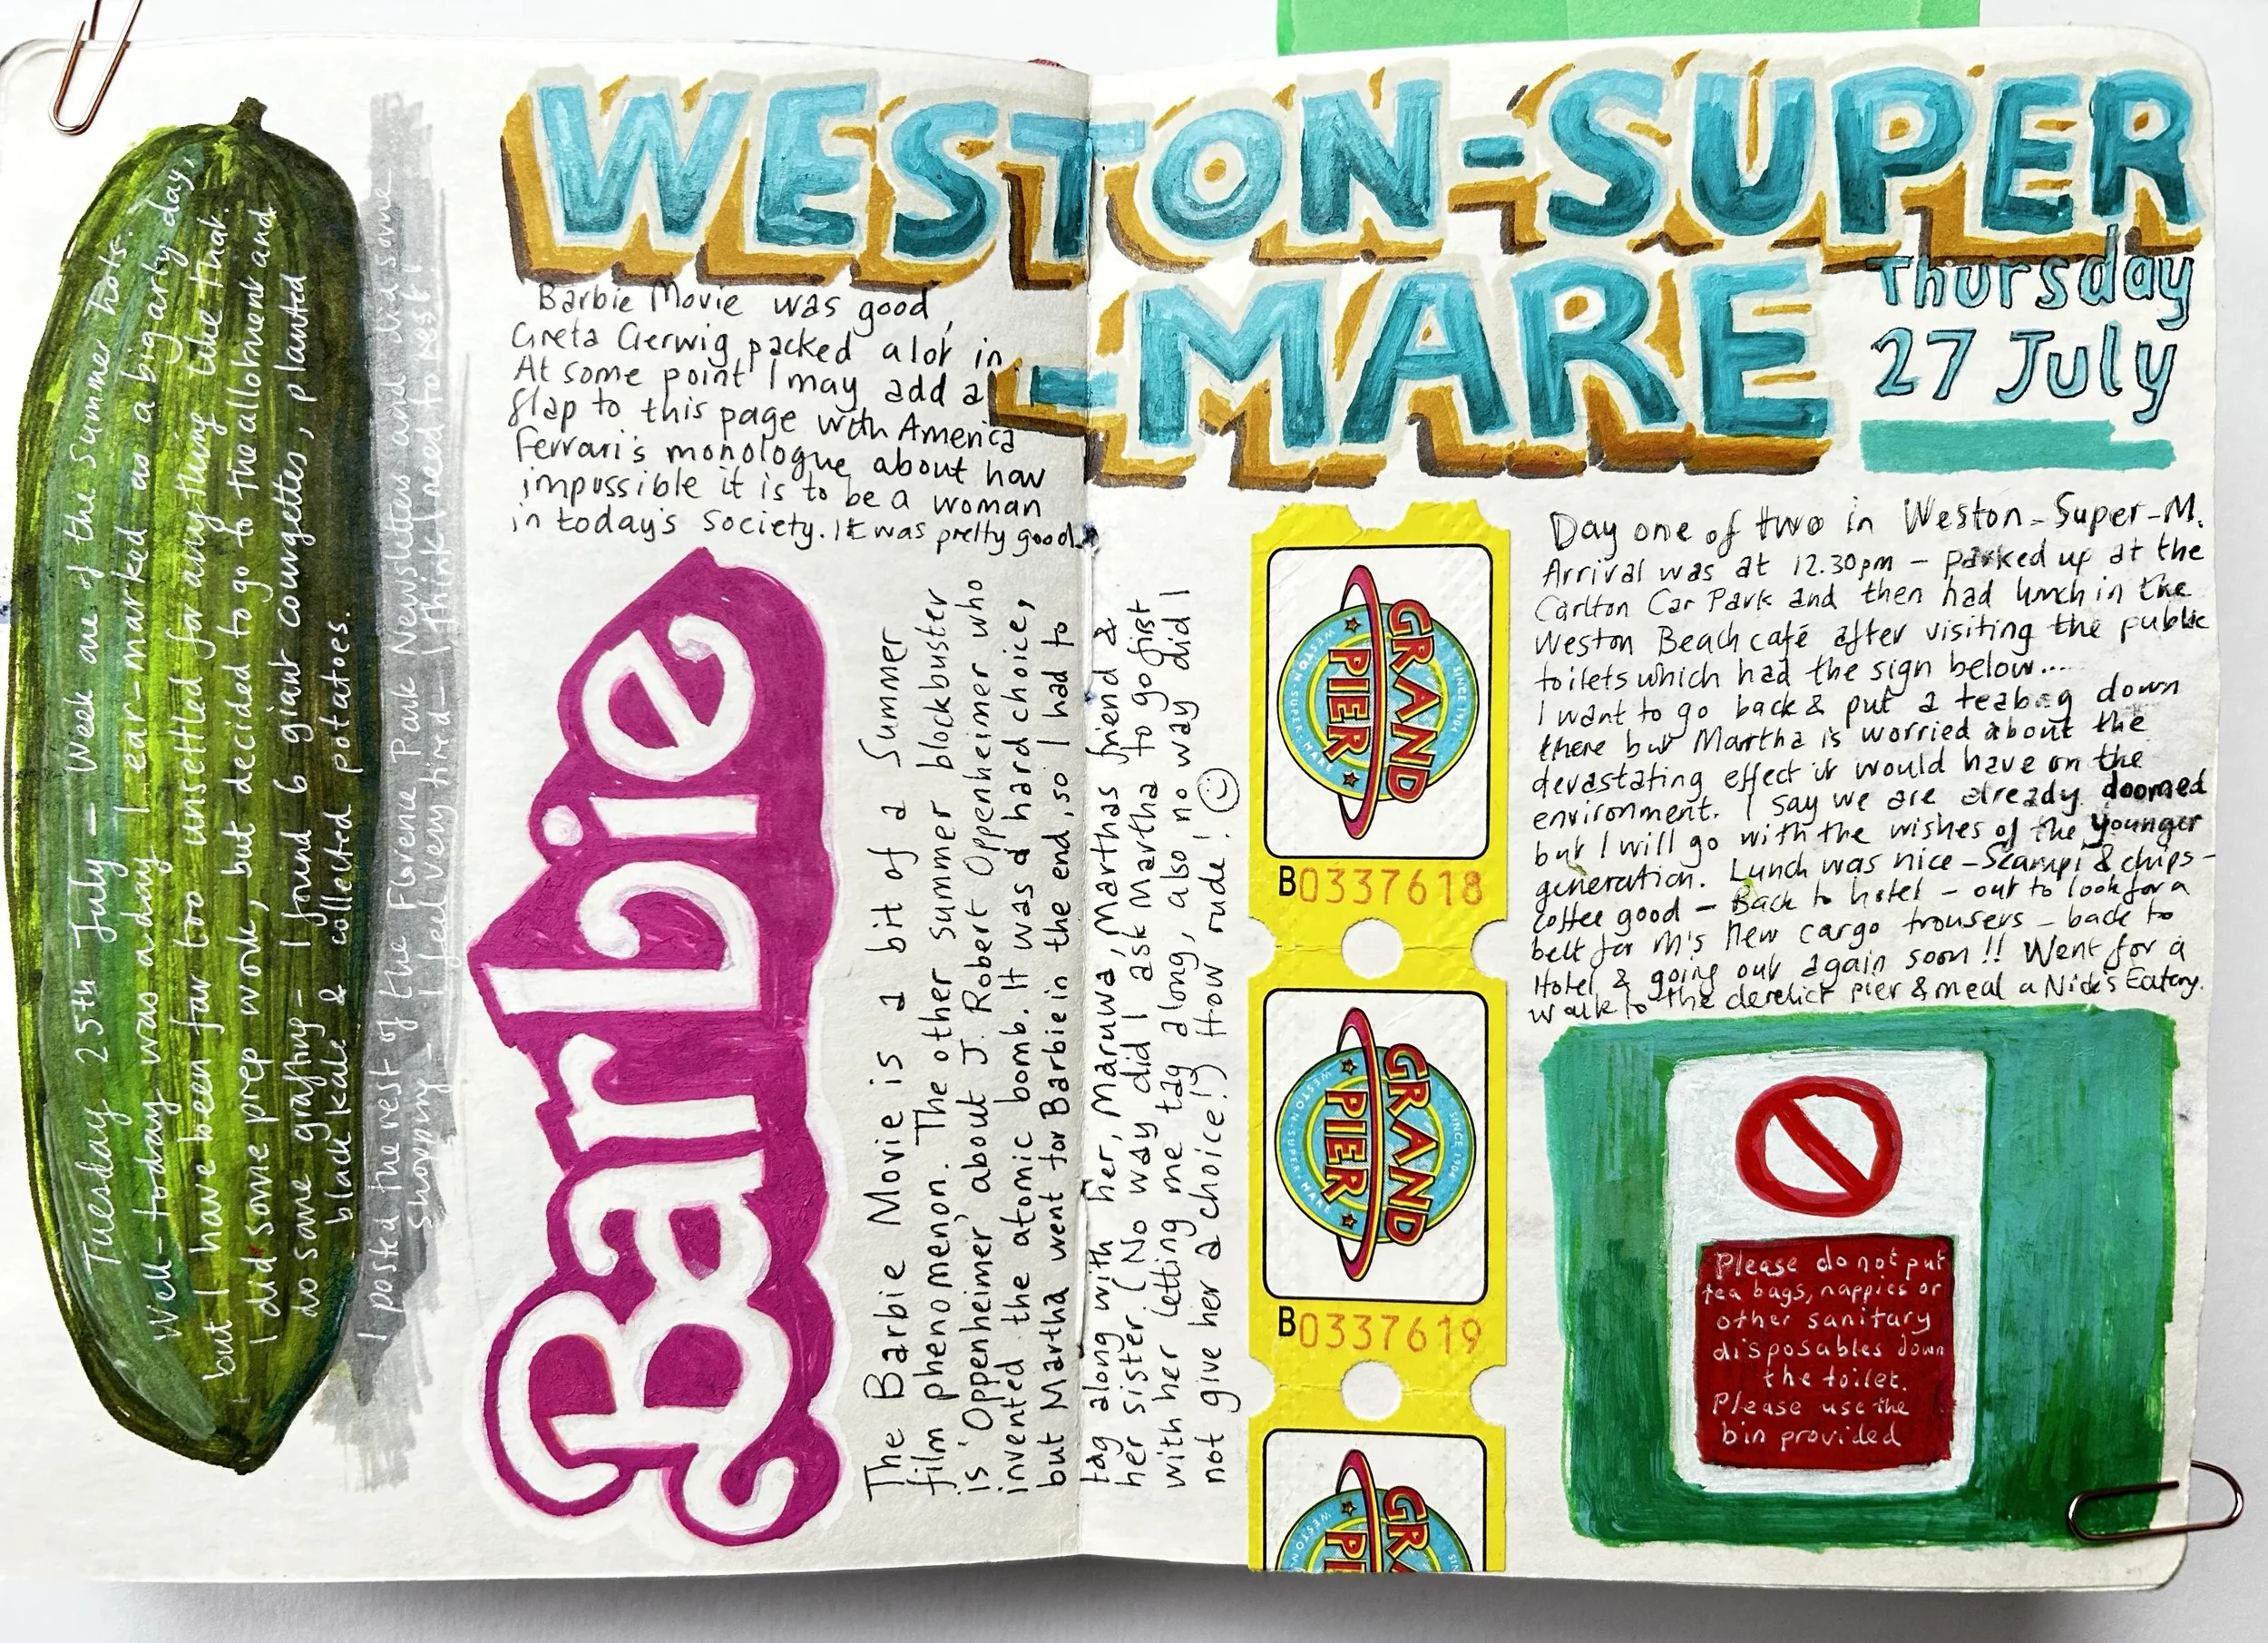 Tuesday 25th July - Week one of the summer hols.
Well - today was a day I ear-marked as a big arty day,
but I have been far too unsettled for anything like that.
I did some prep work, but decided to go to the allotment and
do some grafting - I found 6 giant courgettes, planted
black kale & collected potatoes.
I posted the rest of the Florence Park Newsletters and did some
shopping - I feel very tired - I think I need to rest!
WESTON-SUPER
-MARE
Thursday
27 July
Barbie Movie was good,
Greta Gerwig packed alot in.
At some point I may add a
flap to this page with America
Ferrari's monologue about how
impossible it is to be a woman
in today's society. It was pretty good.
Barbie
The Barbie Movie is a bit of a Summer
film phenomenon. The other summer blockbuster
is 'Oppenheimer' about J. Robert Oppenheimer who
invented the atomic bomb. It was a hard choice,
but Martha went for Barbie in the end, so I had to
tag along with her, Maruwa, Marthas friend &
her sister. (No way did I ask Martha to go first
with her letting me tag along, also no way did I
not give her a choice!) How rude!
GRAND
PIER
SINCE 1904
WESTON-SUPER-MARE
B0337618
GRAND
PIER
SINCE 1904
WESTON-SUPER-MARE
B0337619
GRA
PIE
SIN
WESTO
Day one of two in Weston-Super-M.
Arrival was at 12.30pm - parked up at the
Carlton Car Park and then had lunch in the
Weston Beach café after visiting the public
toilets which had the sign below....
I want to go back & put a teabag down
there but Martha is worried about the
devastating effect it would have on the
environment. I say we are already doomed
but I will go with the wishes of the younger
generation. Lunch was nice - Scampi & chips -
coffee good - Back to hotel - out to look for a
belt for M's new cargo trousers - back to
Hotel & going out again soon!! Went for a
walk to the derelict pier & meal a Nick's Eatery.
Please do not put
tea bags, nappies or
other sanitary
disposables down
the toilet.
Please use the
bin provided